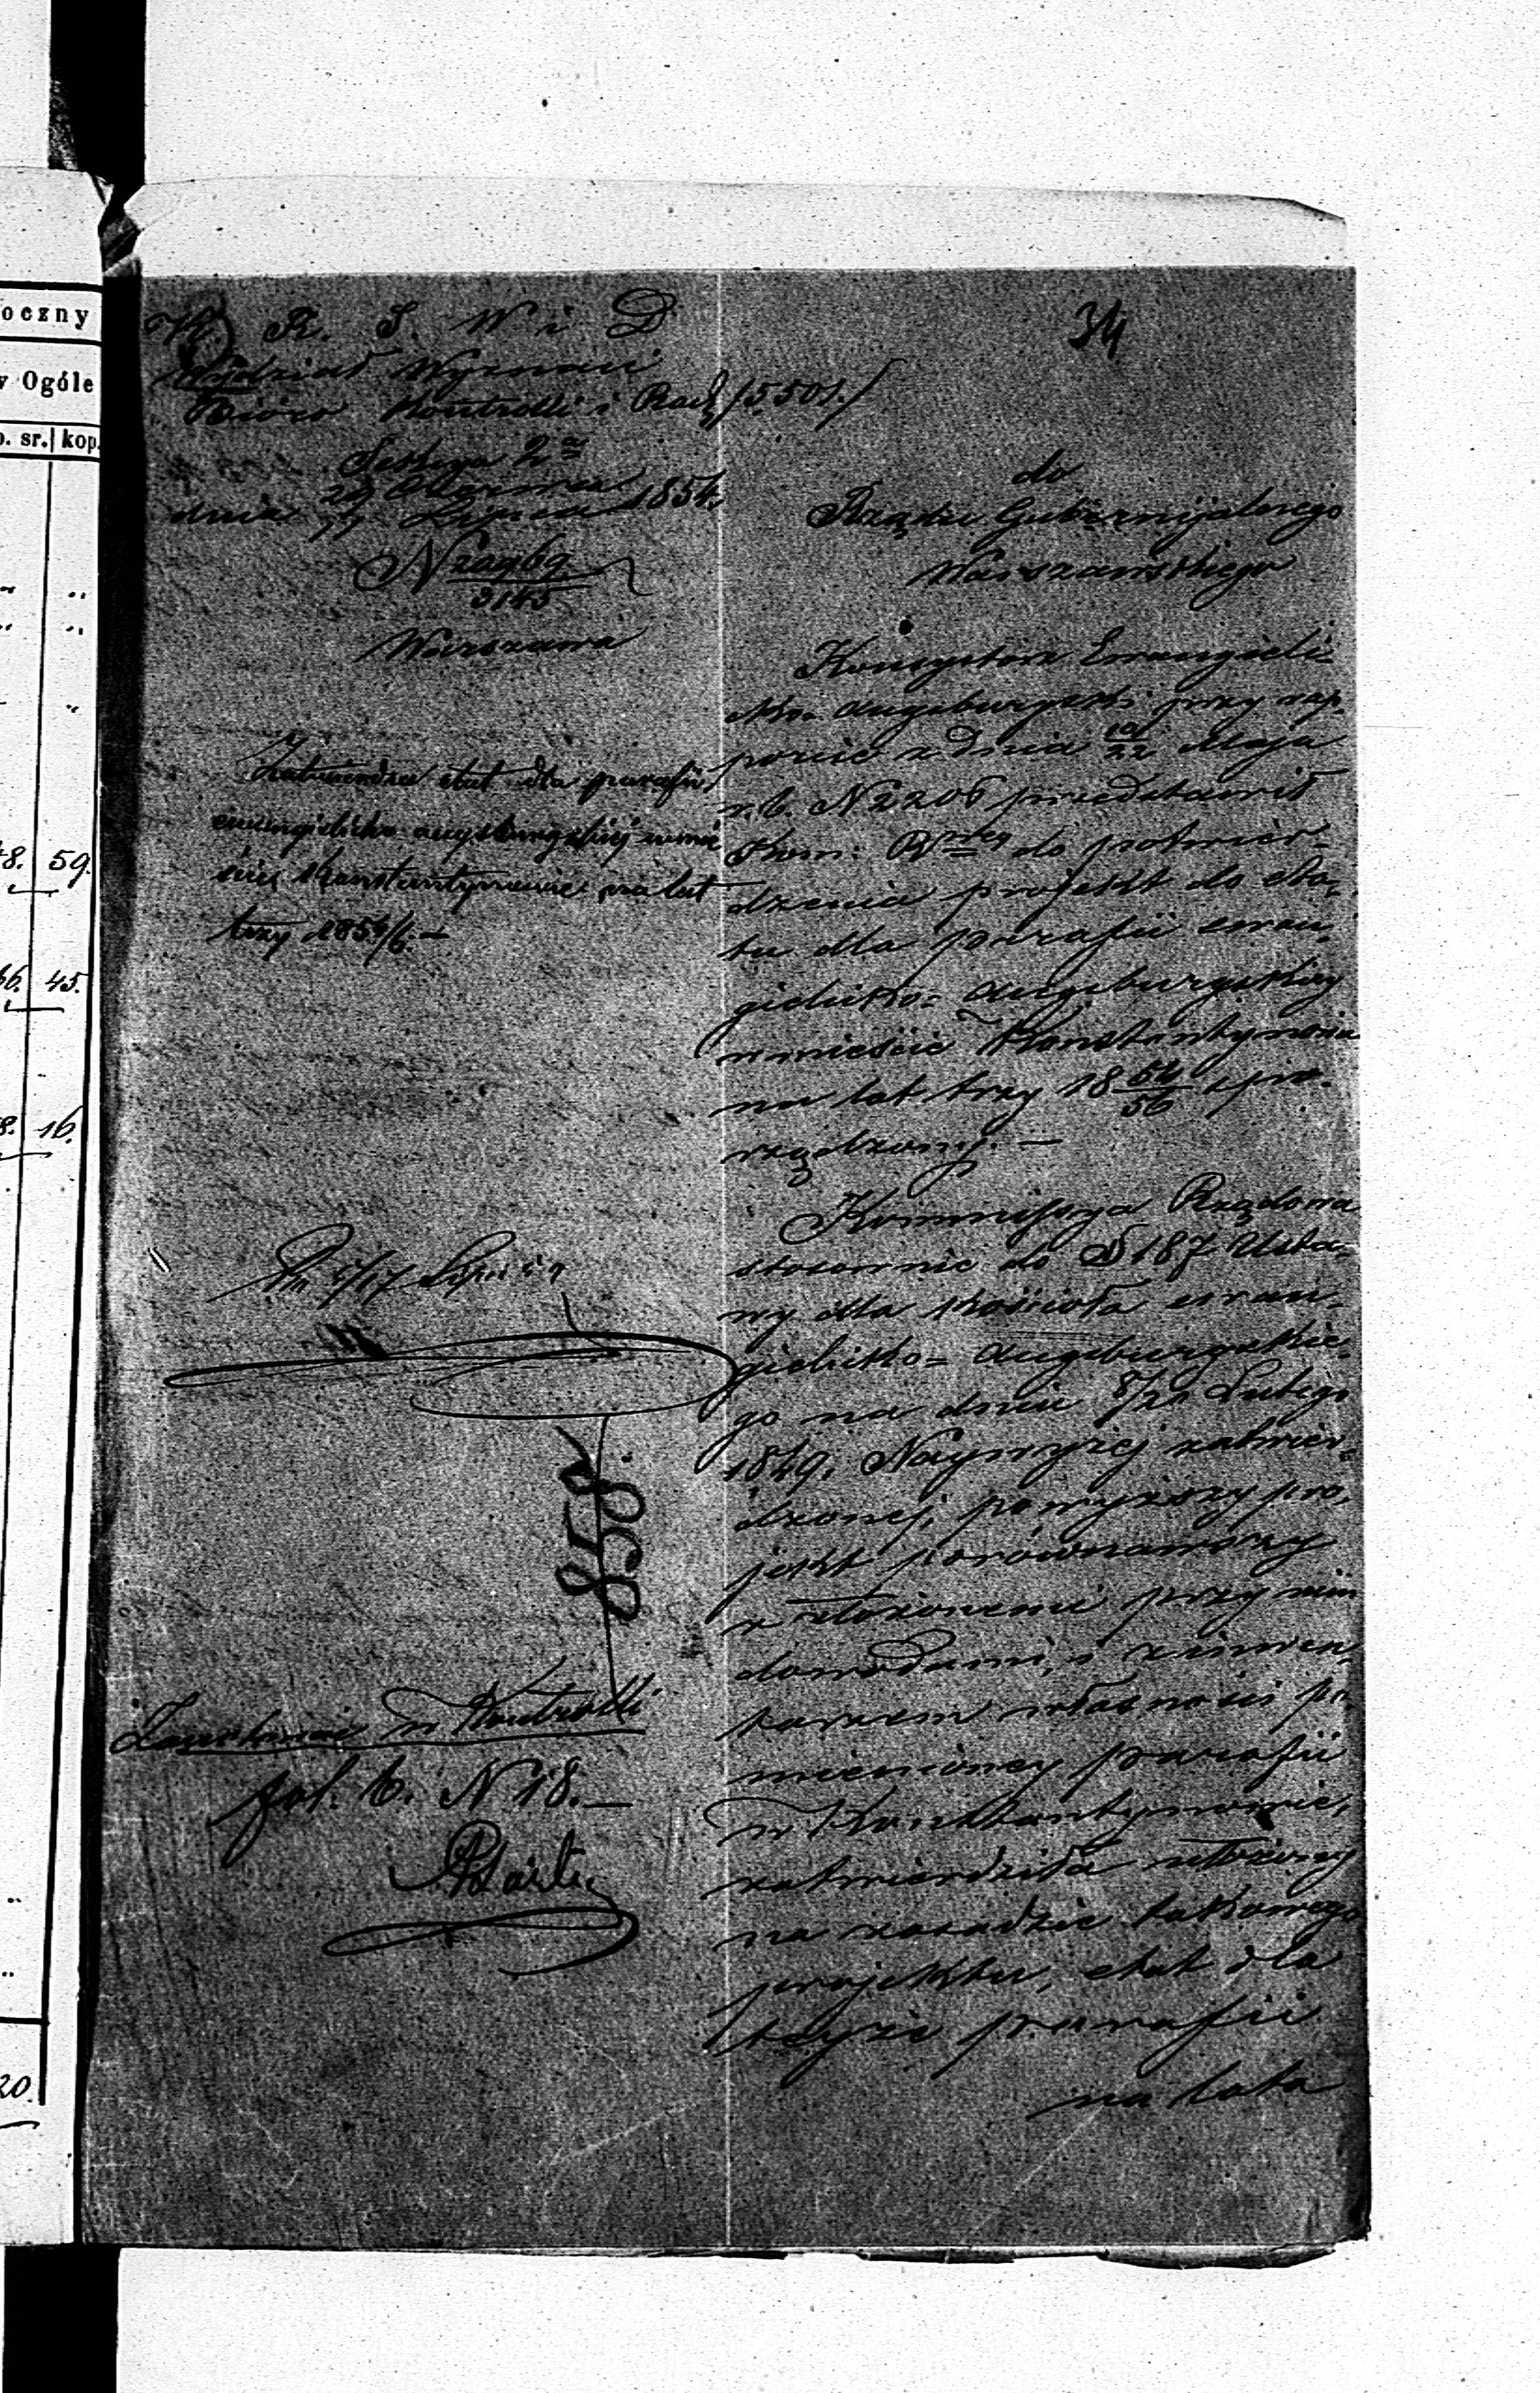 oczny
w Ogóle
sr. kop.
59.
45.
16.
20.
34
K. R. S. W i D
Wydział Wyznań
Bióro Kontrolli i Rach /5501./
Sekcya 2a
dnia 29 Czerwca 1854.
Lipca
N 20969
3145
Warszawa
Zatwierdza etat dla parafii
ewangielicko augsburgskiej w mie
ście Konstantynowie na lat
trzy 1854/6. —
5/17 Lipca
858.
w Kontrolli
fol. 6. N 18. —
do
Rządu Gubernijalnego
Warszawskiego
Konsystorz Ewangieli-
cko-Augsburgski przy rap-
porcie z dnia 10/22 Maja
r. b. N 2206 przedstawił
Kom: Rządowej do potwier-
dzenia projekt do eta-
tu dla parafii ewan-
gielicko= Augsburgskiey
w mieście Konstantynowie
na lat trzy 18 54/56 spo-
rządzony. —
Kommissya Rządowa
stosownie do § 187 Usta-
wy dla Kościoła ewan-
gielicko= Augsburgskie-
go na dniu 8/20 Lutego
1849. Naywyżej zatwier-
dzonej, powyższy pro-
jekt porównawszy
z złożonemi przy nim
dowodami, i z inwen-
tarzem własności po
mienioney parafii
w Konstantynowie,
zatwierdziła ułożony
na zasadzie takowego
projektu, etat dla
teyże parafii
na lata